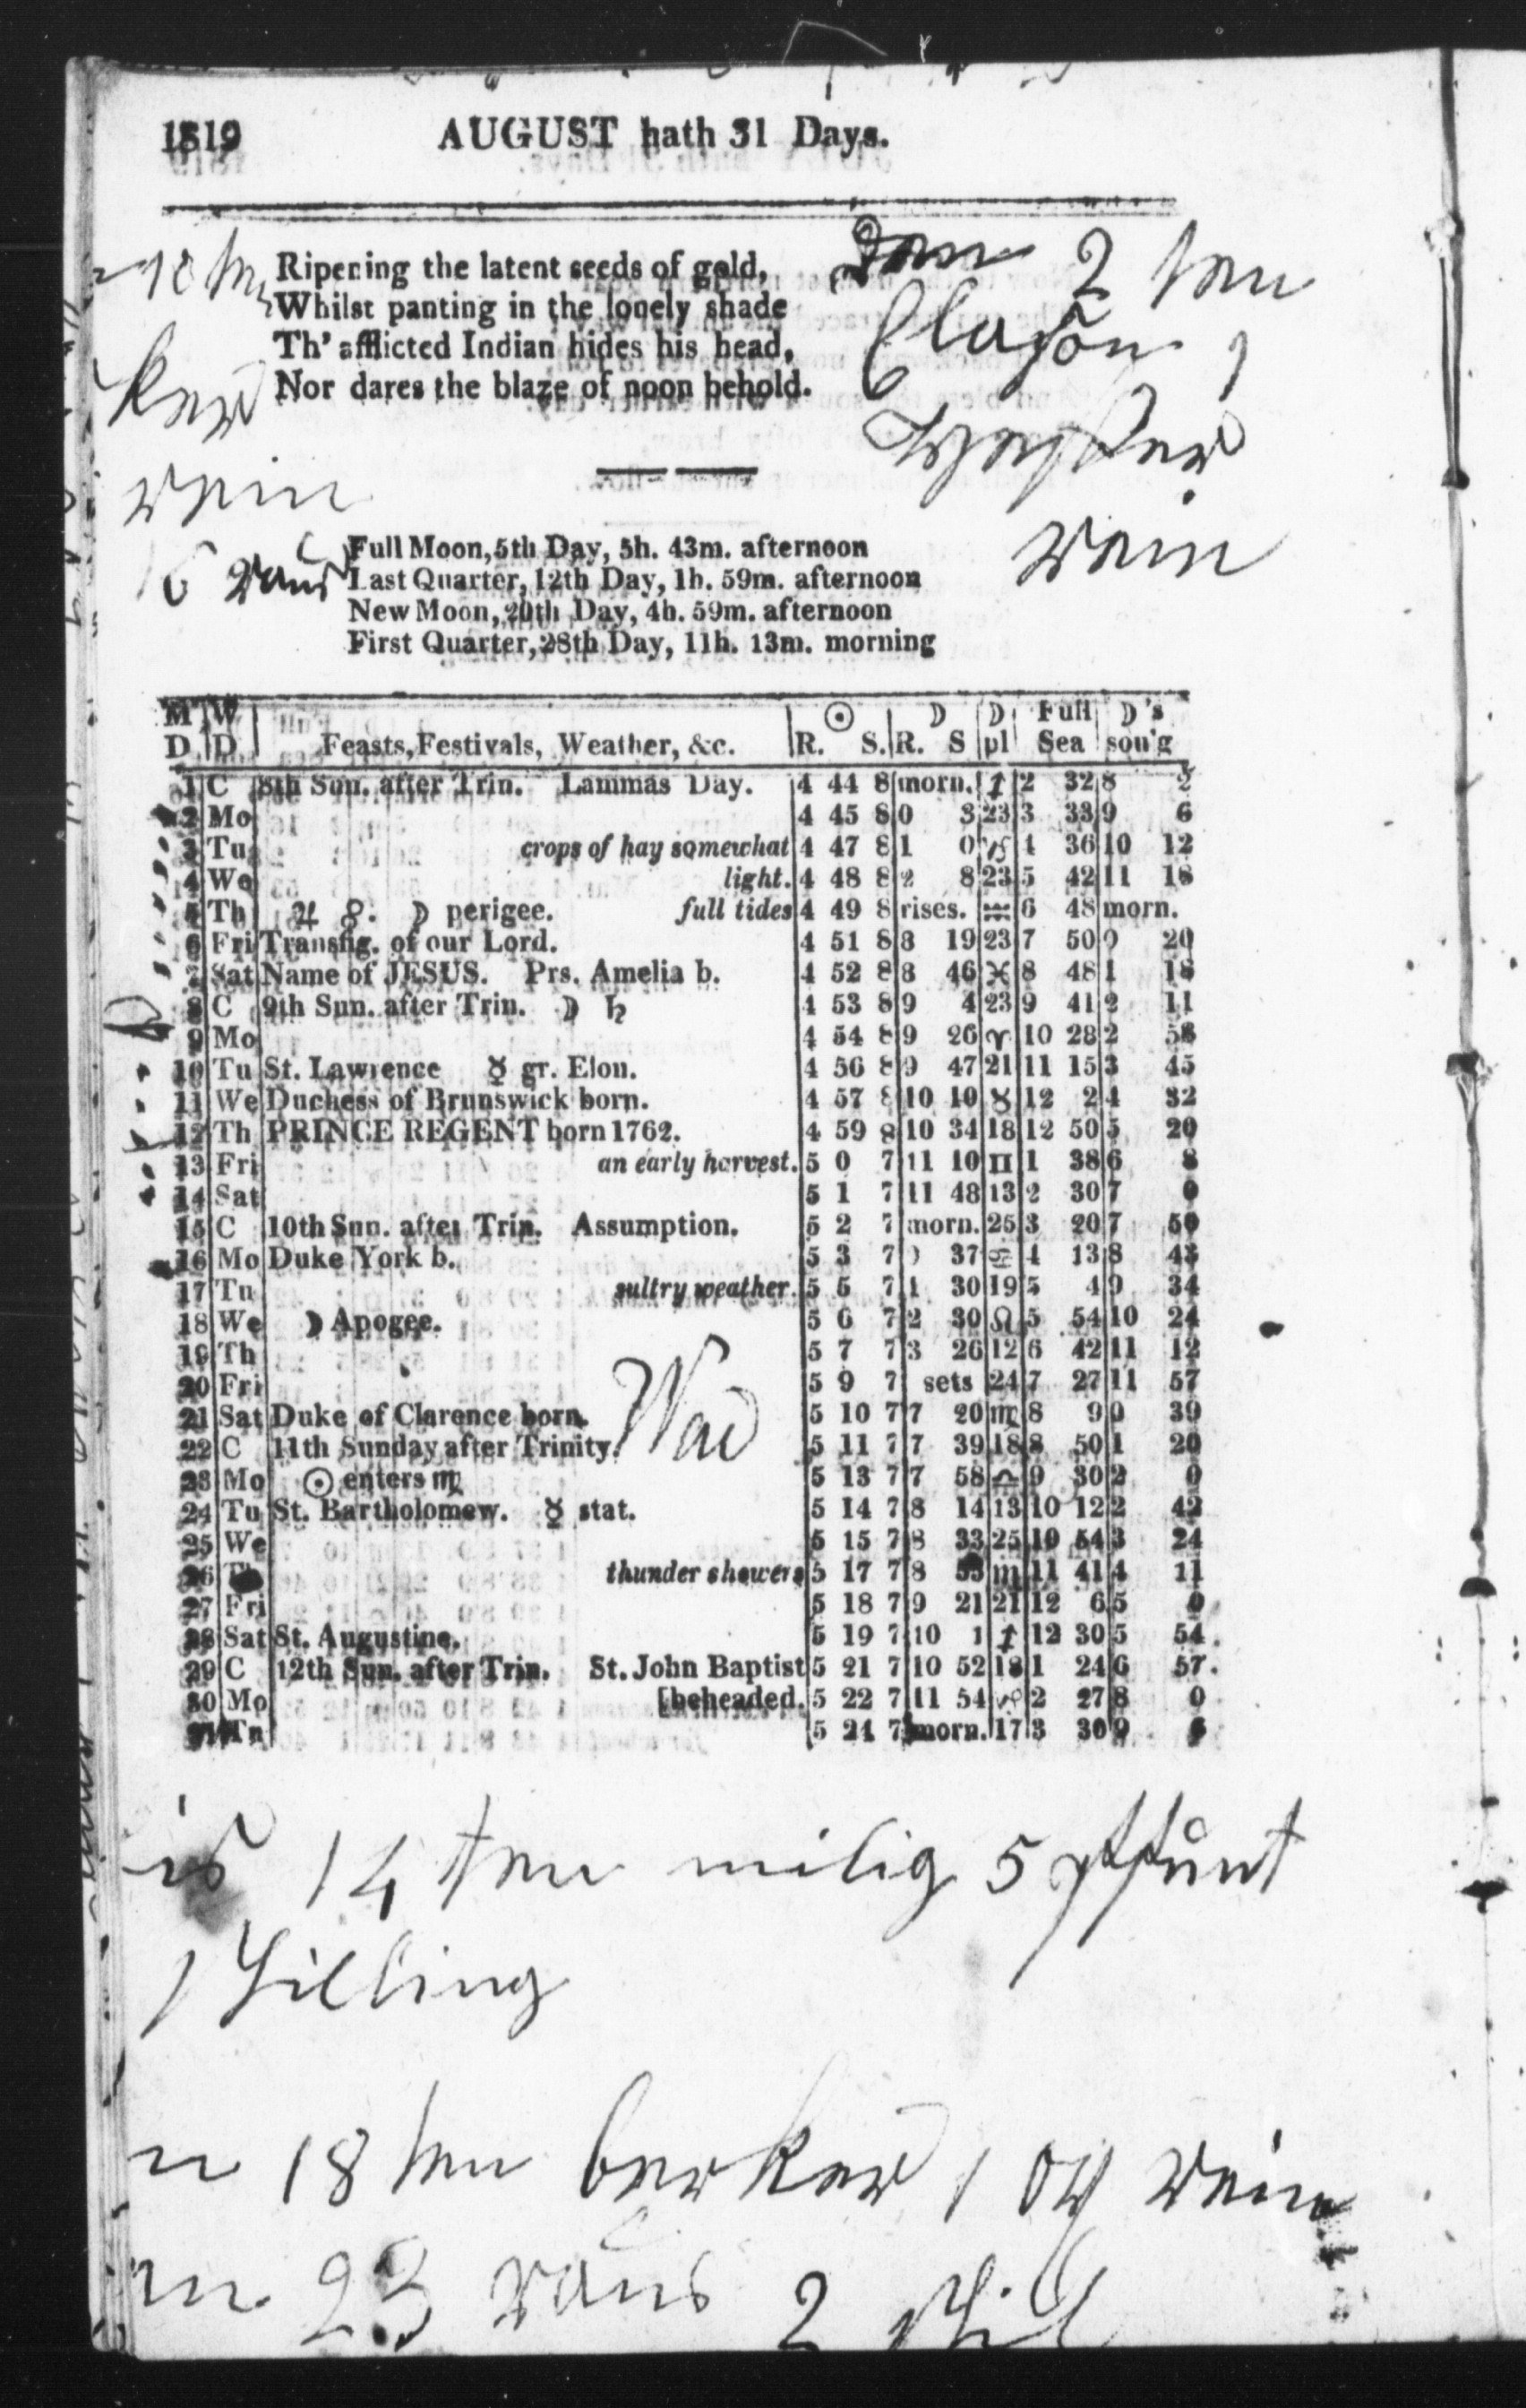 1819 AUGUST hath 31 Days.
Ripening the latent seeds of gold,
Whilst panting in the lonely shade
Th' afflicted Indian hides his head,
Nor dares the blaze of noon behold.
2 ten
Full Moon, 5th Day, 5h. 43m. afternoon
Last Quarter, 12th Day, 1h. 59m. afternoon
New Moon, 20th Day, 4h. 59m. afternoon
First Quarter, 28th Day, 11h. 13m. morning
M W ☉ ☽ ☽ Full ☽'s
D D Feasts, Festivals, Weather, &c. R. S. R. S pl Sea sou'g
1 C 8th Sun. after Trin. Lammas Day. 4 44 8 morn. ♐ 2 32 8 2
2 Mo 4 45 8 0 3 23 3 33 9 6
3 Tu crops of hay somewhat 4 47 8 1 0 ♑ 4 36 10 12
4 We light. 4 48 8 2 8 23 5 42 11 18
5 Th ♃ ☍. ☽ perigee. full tides 4 49 8 rises. ♒ 6 48 morn.
6 Fri Transfig. of our Lord. 4 51 8 8 19 23 7 50 0 20
7 Sat Name of JESUS. Prs. Amelia b. 4 52 8 8 46 ♓ 8 48 1 18
8 C 9th Sun. after Trin. ☽ ♄ 4 53 8 9 4 23 9 41 2 11
9 Mo 4 54 8 9 26 ♈ 10 28 2 58
10 Tu St. Lawrence ☿ gr. Elon. 4 56 8 9 47 21 11 15 3 45
11 We Duchess of Brunswick born. 4 57 8 10 10 ♉ 12 2 4 32
12 Th PRINCE REGENT born 1762. 4 59 8 10 34 18 12 50 5 20
13 Fri an early harvest. 5 0 7 11 10 ♊ 1 38 6 8
14 Sat 5 1 7 11 48 13 2 30 7 0
15 C 10th Sun. after Trin. Assumption. 5 2 7 morn. 25 3 20 7 50
16 Mo Duke York b. 5 3 7 0 37 ♋ 4 13 8 43
17 Tu sultry weather. 5 5 7 1 30 19 5 4 9 34
18 We ☽ Apogee. 5 6 7 2 30 ♌ 5 54 10 24
19 Th 5 7 7 3 26 12 6 42 11 12
20 Fri 5 9 7 sets 24 7 27 11 57
21 Sat Duke of Clarence born. 5 10 7 7 20 ♍ 8 9 0 39
22 C 11th Sunday after Trinity. 5 11 7 7 39 18 8 50 1 20
23 Mo ☉ enters ♍ 5 13 7 7 58 ♎ 9 30 2 0
24 Tu St. Bartholomew. ☿ stat. 5 14 7 8 14 13 10 12 2 42
25 We 5 15 7 8 33 25 10 54 3 24
26 thunder showers 5 17 7 8 53 ♏ 11 41 4 11
27 Fri 5 18 7 9 21 21 12 6 5 0
28 Sat St. Augustine. 5 19 7 10 1 ♐ 12 30 5 54
29 C 12th Sun. after Trin. St. John Baptist 5 21 7 10 52 18 1 24 6 57
30 Mo [beheaded. 5 22 7 11 54 ♑ 2 27 8 0
31 Tu 5 24 7 morn. 17 3 30 9 6
14 ten milig 5 pffunt
1 Schilling
18 ten
23 2 schil